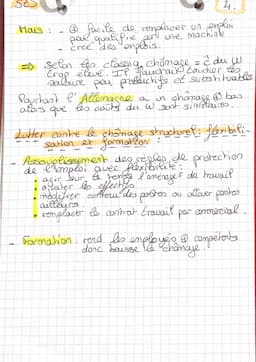 SES
4.
Mais : - ⊕ facile de remplacer un emploi
peu qualifié par une machine
- crée des emplois.
⇒ Selon les classiq, chômage = c̄ du W
trop élevé. Il faudrait toucher les
salaire peu productifs et substituables
Pourtant l'Allemagne a un chômage ⊕ bas
alors que les coûts du W sont similaires.
Lutter contre le chômage structurel : flexibili-
sation et formation :
- Assouplissement des règles de protection
de l'emploi avec flexibilité :
• agir sur le temps d'aménagé de travail
les effectifs
• modifier contenu des postes ou postes
ailleurs.
• remplacer le contrat travail par commercial.
- Formation : rend les employés ⊕ compétents
donc baisse le chômage.